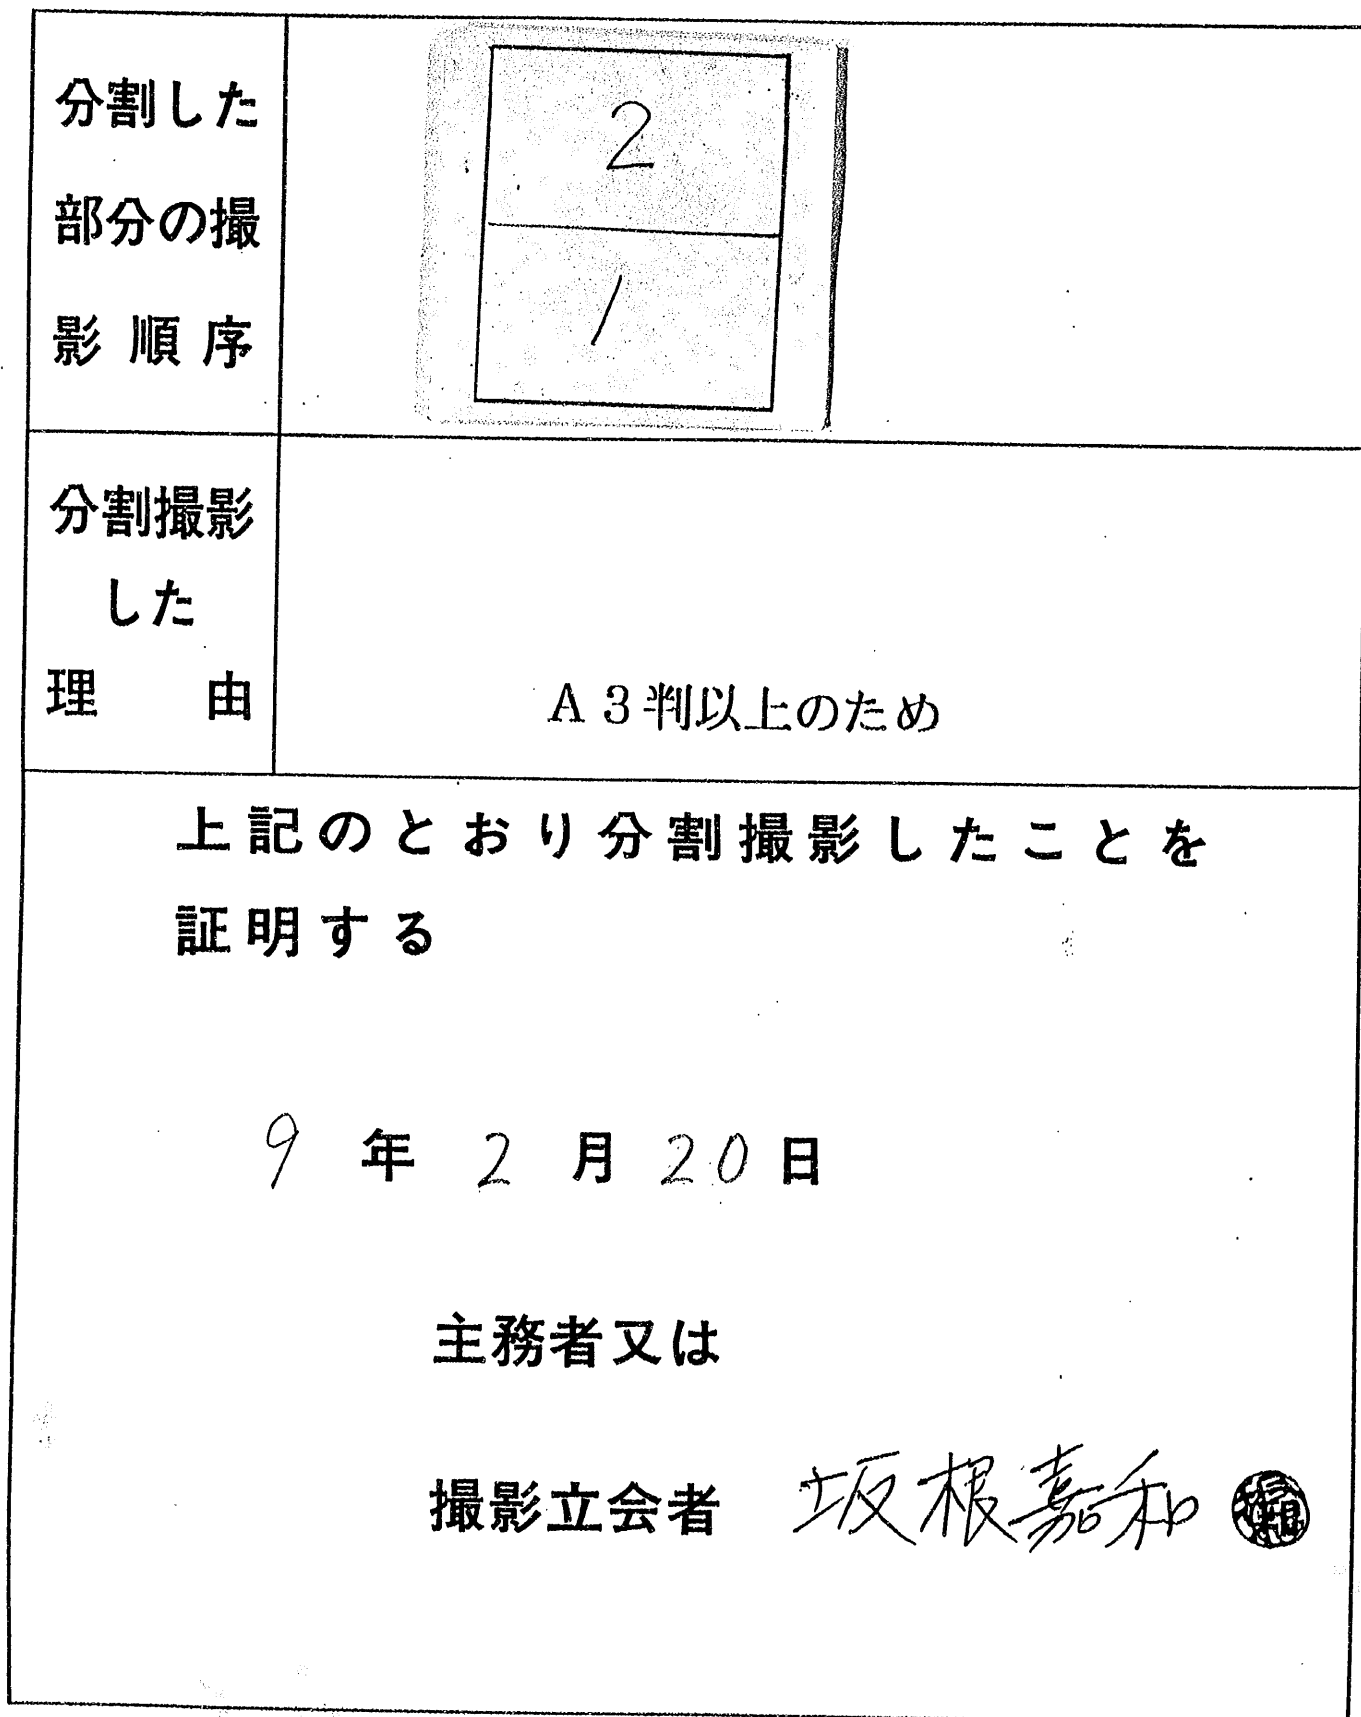 分割した
部分の撮
影順序
2
1
分割撮影
した
理由
A3判以上のため
上記のとおり分割撮影したことを
証明する
9年2月20日
主務者又は
撮影立会者 坂根嘉和